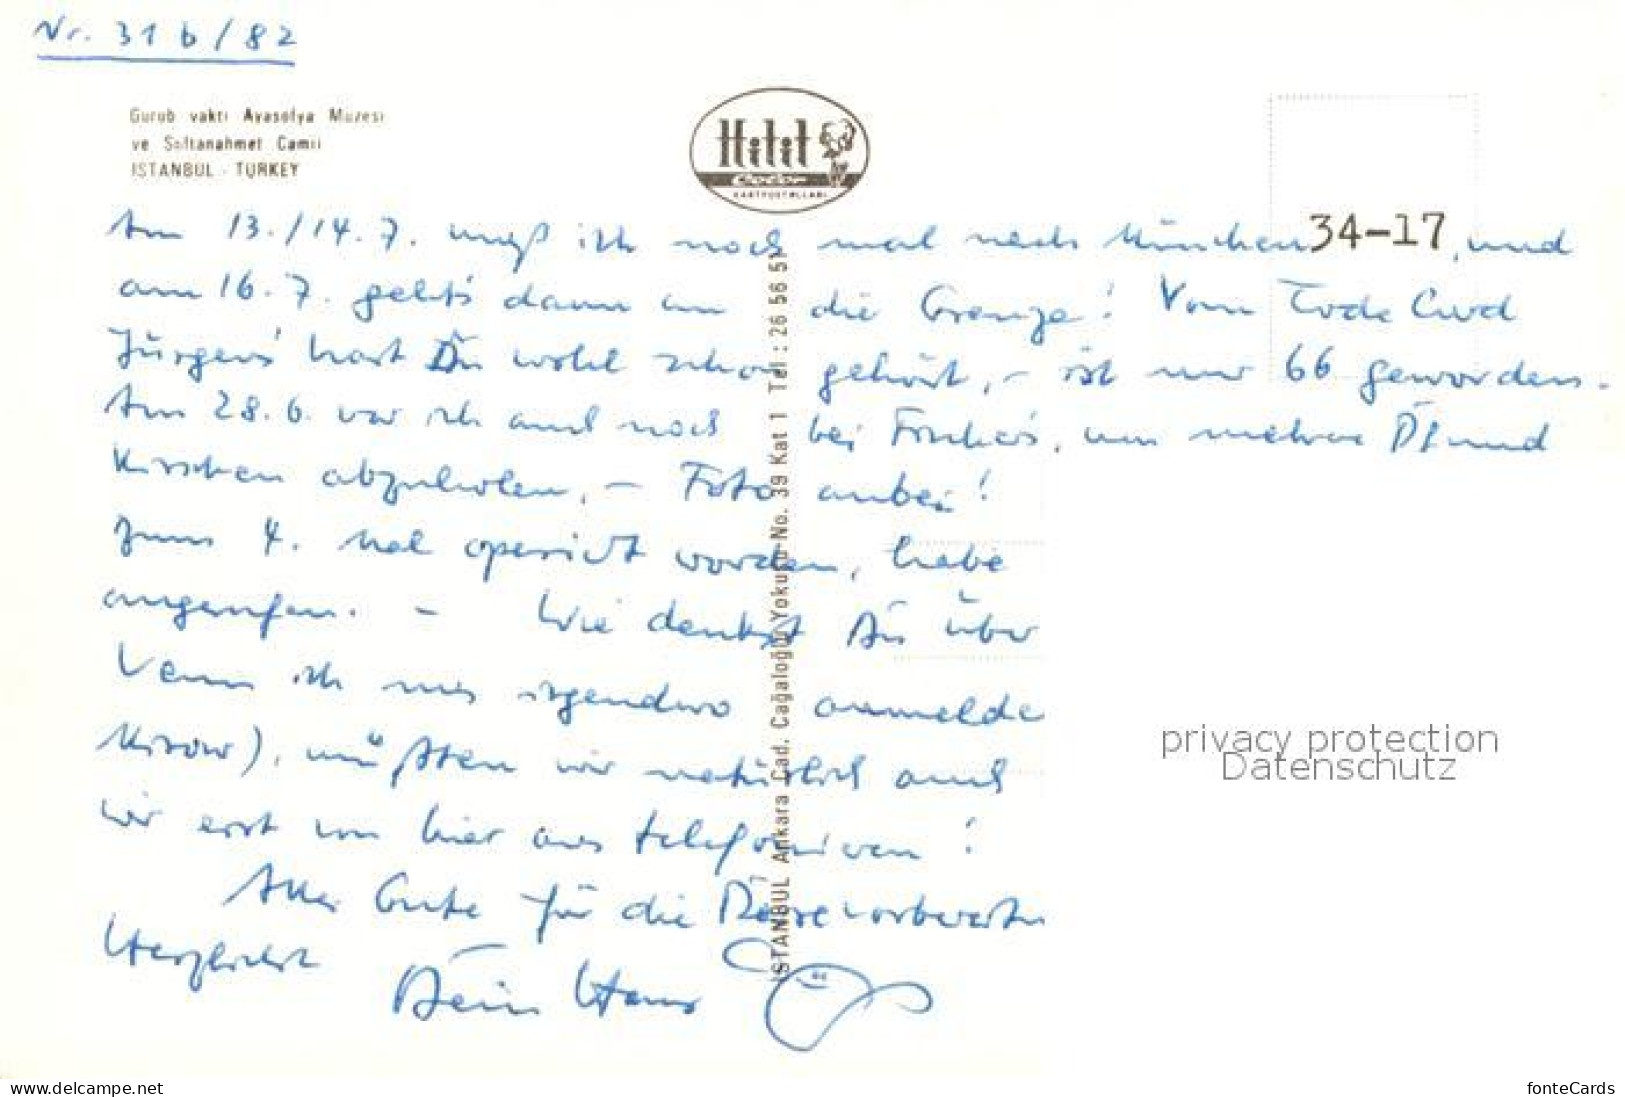 Nr. 31 b / 82
Gurub vakti Ayasofya Müzesi
ve Sultanahmet Camii
ISTANBUL - TURKEY
Hitit
Color
KARTPOSTALLARI
34-17
Am 13./14.7. muß ich noch mal nach München, und
am 16.7. geht's dann an die Grenze! Vom Tode Curd
Jürgens' hast Du wohl schon gehört, – ist nur 66 geworden.
Am 28.6. war ich auch noch bei, um mehrere Pfund
Kirschen abzuholen, – Foto anbei!
Zum 4. Mal operiert worden, habe
angerufen. – Wie denkst Du über
Wenn ich mich irgendwo anmelde
), müßten wir natürlich auch
wir erst von hier aus telefonieren!
Alles Gute für die Reisevorbereitu
Herzlichst Dein Hans
ISTANBUL Ankara Cad. Cağaloğlu Yokuşu No. 39 Kat 1 Tel : 26 56 51
privacy protection
Datenschutz
www.delcampe.net
fonteCards